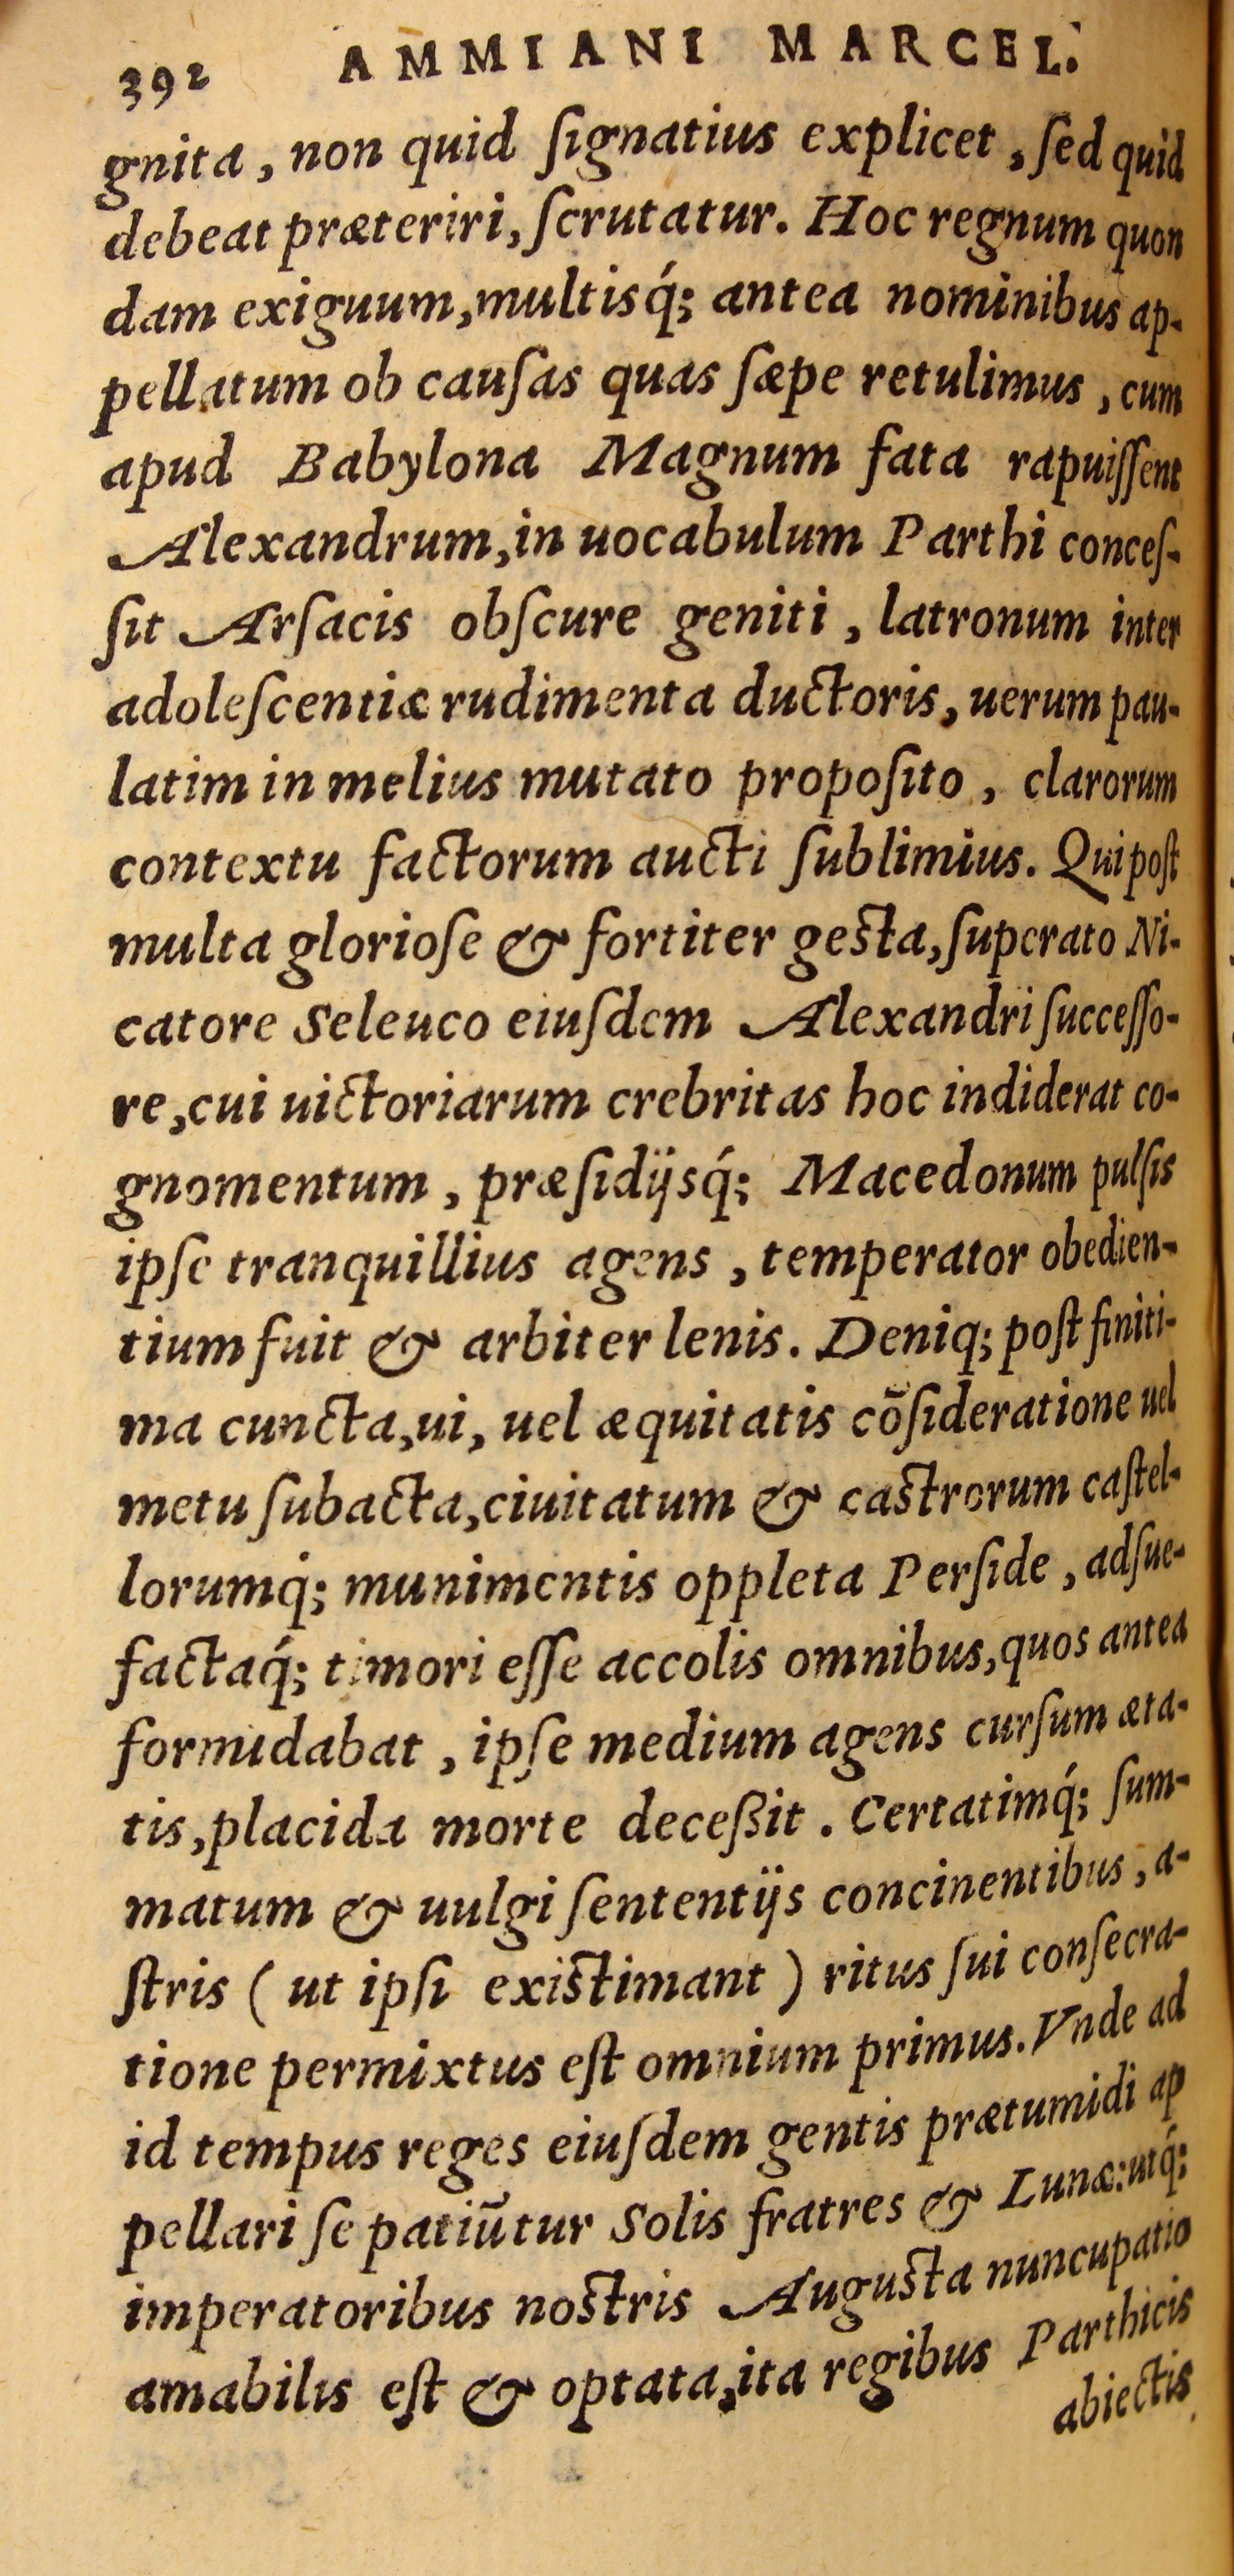 392 AMMIANI MARCEL.
gnita, non quid ſignatius explicet, ſed quid
debeat præteriri, ſcrutatur. Hoc regnum quon
dam exiguum, multisq́; antea nominibus ap-
pellatum ob cauſas quas ſæpe retulimus, cum
apud Babylona Magnum fata rapuiſſent
Alexandrum, in uocabulum Parthi conceſ-
ſit Arſacis obſcure geniti, latronum inter
adoleſcentiæ rudimenta ductoris, uerum pau-
latim in melius mutato propoſito, clarorum
contextu factorum aucti ſublimius. Qui poſt
multa glorioſe & fortiter geſta, ſuperato Ni-
catore Seleuco eiuſdem Alexandri ſucceſſo-
re, cui uictoriarum crebritas hoc indiderat co-
gnomentum, præſidijsq́; Macedonum pulſis
ipſe tranquillius agens, temperator obedien-
tium fuit & arbiter lenis. Deniq; poſt finiti-
ma cuncta, ui, uel æquitatis cōſideratione uel
metu ſubacta, ciuitatum & caſtrorum caſtel-
lorumq́; munimentis oppleta Perſide, adſue-
factaq́; timori eſſe accolis omnibus, quos antea
formidabat, ipſe medium agens curſum æta-
tis, placida morte deceßit. Certatimq́; ſum-
matum & uulgi ſententijs concinentibus, a-
ſtris (ut ipſi exiſtimant) ritus ſui conſecra-
tione permixtus eſt omnium primus. Vnde ad
id tempus reges eiuſdem gentis prætumidi ap
pellari ſe patiūtur Solis fratres & Lunæ: utq́;
imperatoribus noſtris Auguſta nuncupatio
amabilis eſt & optata, ita regibus Parthicis
abiectis